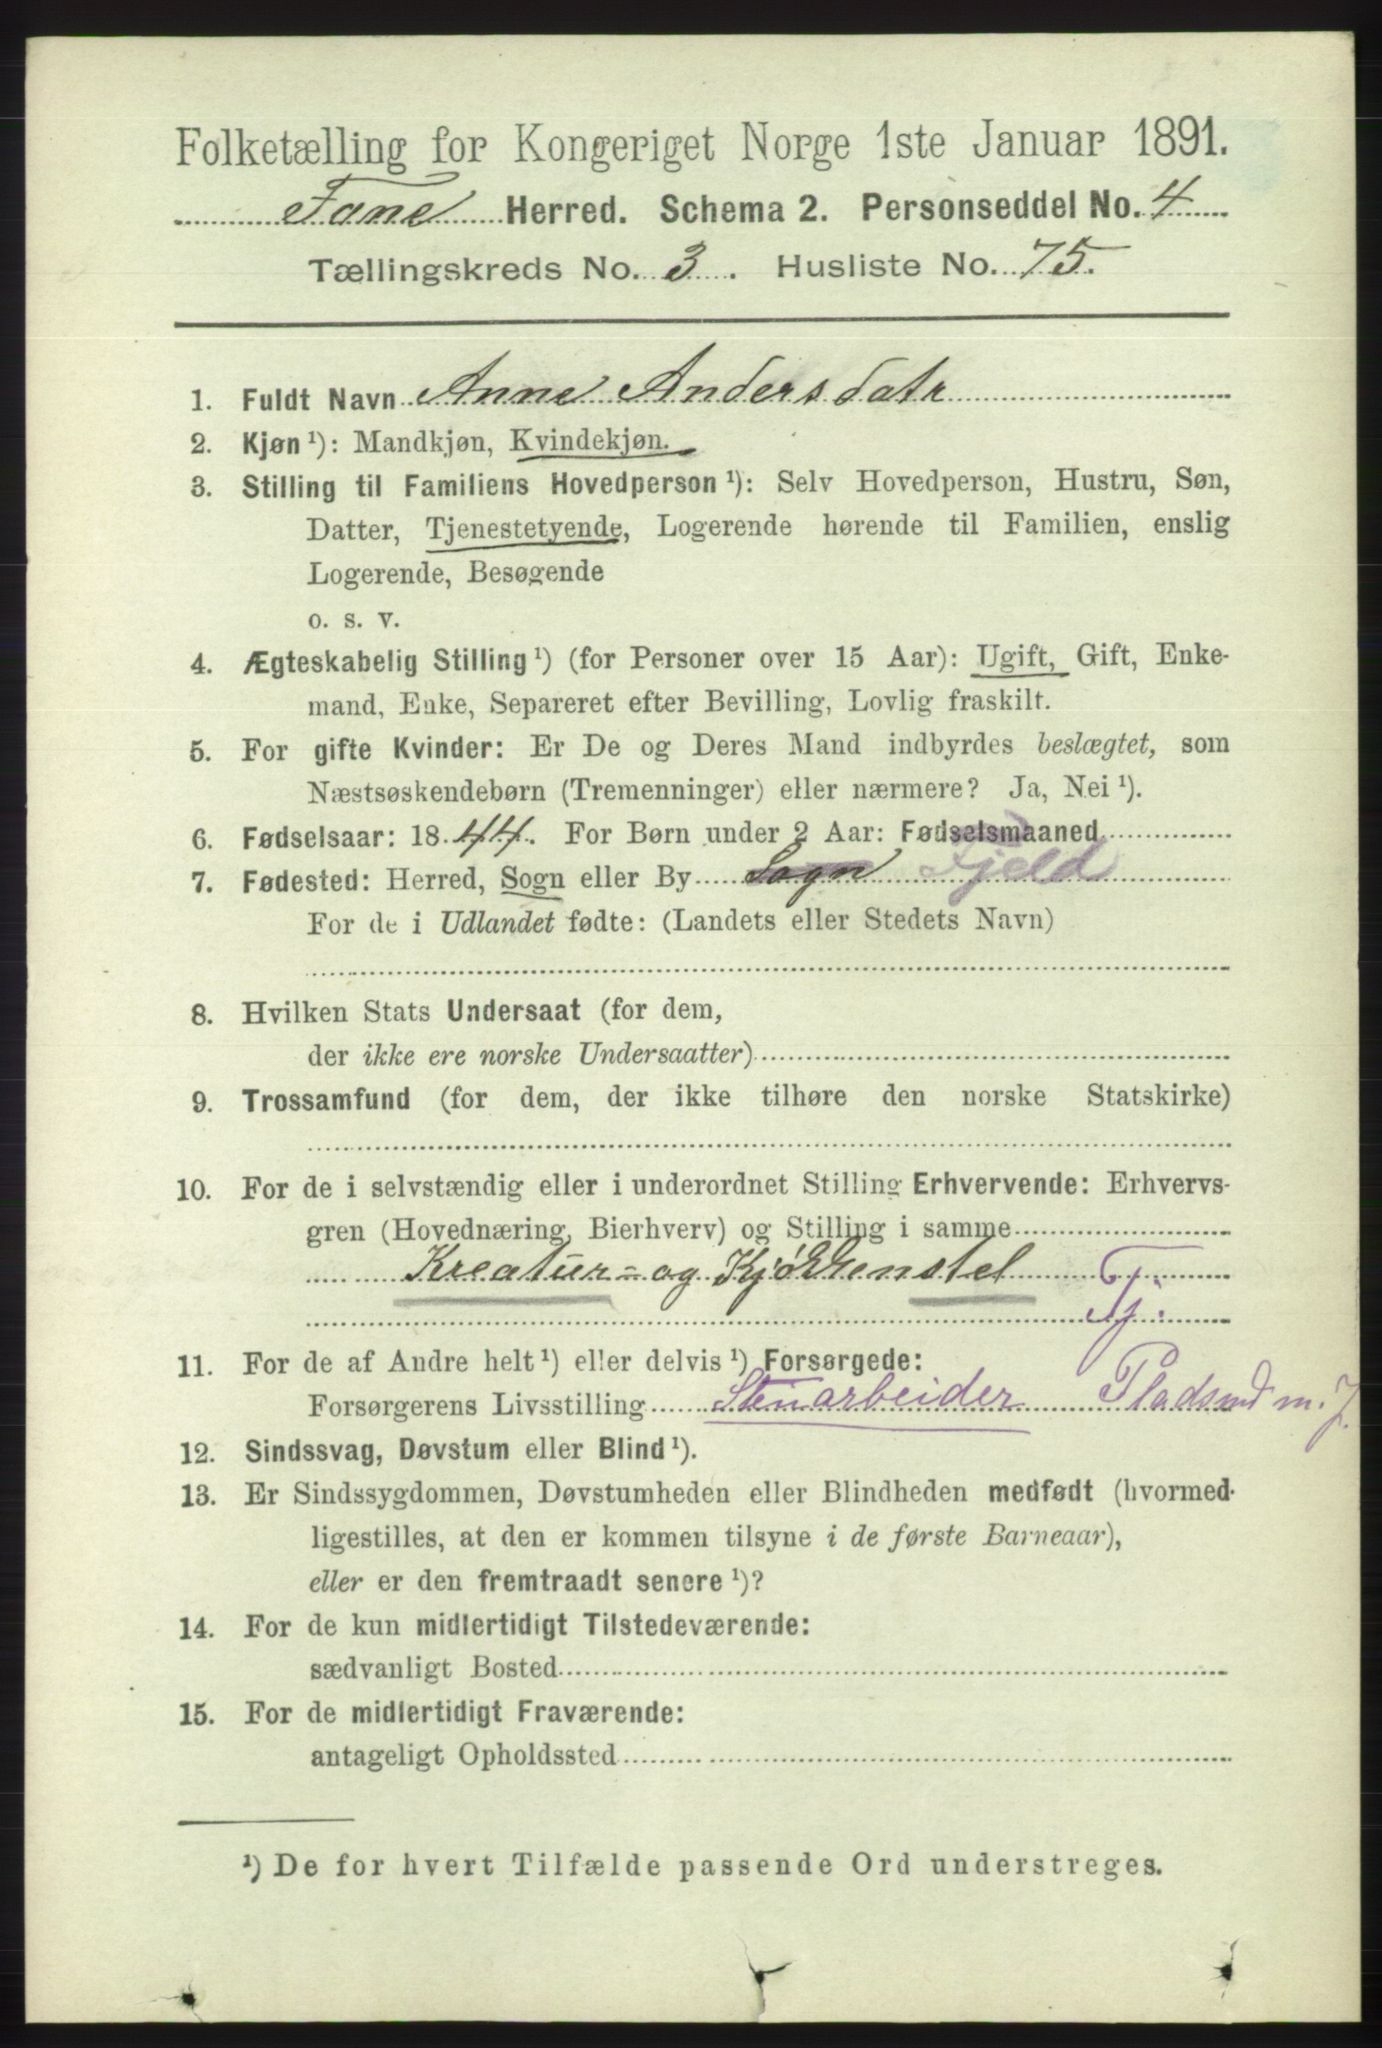 Folketælling for Kongeriget Norge 1ste Januar 1891.
Fane Herred. Schema 2. Personseddel No. 4
Tællingskreds No. 3. Husliste No. 75.
1. Fuldt Navn Anne Andersdatr
2. Kjøn ¹): Mandkjøn, Kvindekjøn.
3. Stilling til Familiens Hovedperson ¹): Selv Hovedperson, Hustru, Søn,
Datter, Tjenestetyende, Logerende hørende til Familien, enslig
Logerende, Besøgende
o. s. v.
4. Ægteskabelig Stilling ¹) (for Personer over 15 Aar): Ugift, Gift, Enke-
mand, Enke, Separeret efter Bevilling, Lovlig fraskilt.
5. For gifte Kvinder: Er De og Deres Mand indbyrdes beslægtet, som
Næstsøskendebørn (Tremenninger) eller nærmere? Ja, Nei ¹).
6. Fødselsaar: 1844. For Børn under 2 Aar: Fødselsmaaned
7. Fødested: Herred, Sogn eller By Sogn Fjeld
For de i Udlandet fødte: (Landets eller Stedets Navn)
8. Hvilken Stats Undersaat (for dem,
der ikke ere norske Undersaatter)
9. Trossamfund (for dem, der ikke tilhøre den norske Statskirke)
10. For de i selvstændig eller i underordnet Stilling Erhvervende: Erhvervs-
gren (Hovednæring, Bierhverv) og Stilling i samme
Kreatur- og Kjøkkenstel Tj.
11. For de af Andre helt ¹) eller delvis ¹) Forsørgede:
Forsørgerens Livsstilling Stenarbeider Pladsmd m. J.
12. Sindssvag, Døvstum eller Blind ¹).
13. Er Sindssygdommen, Døvstumheden eller Blindheden medfødt (hvormed
ligestilles, at den er kommen tilsyne i de første Barneaar),
eller er den fremtraadt senere ¹)?
14. For de kun midlertidigt Tilstedeværende:
sædvanligt Bosted
15. For de midlertidigt Fraværende:
antageligt Opholdssted
¹) De for hvert Tilfælde passende Ord understreges.